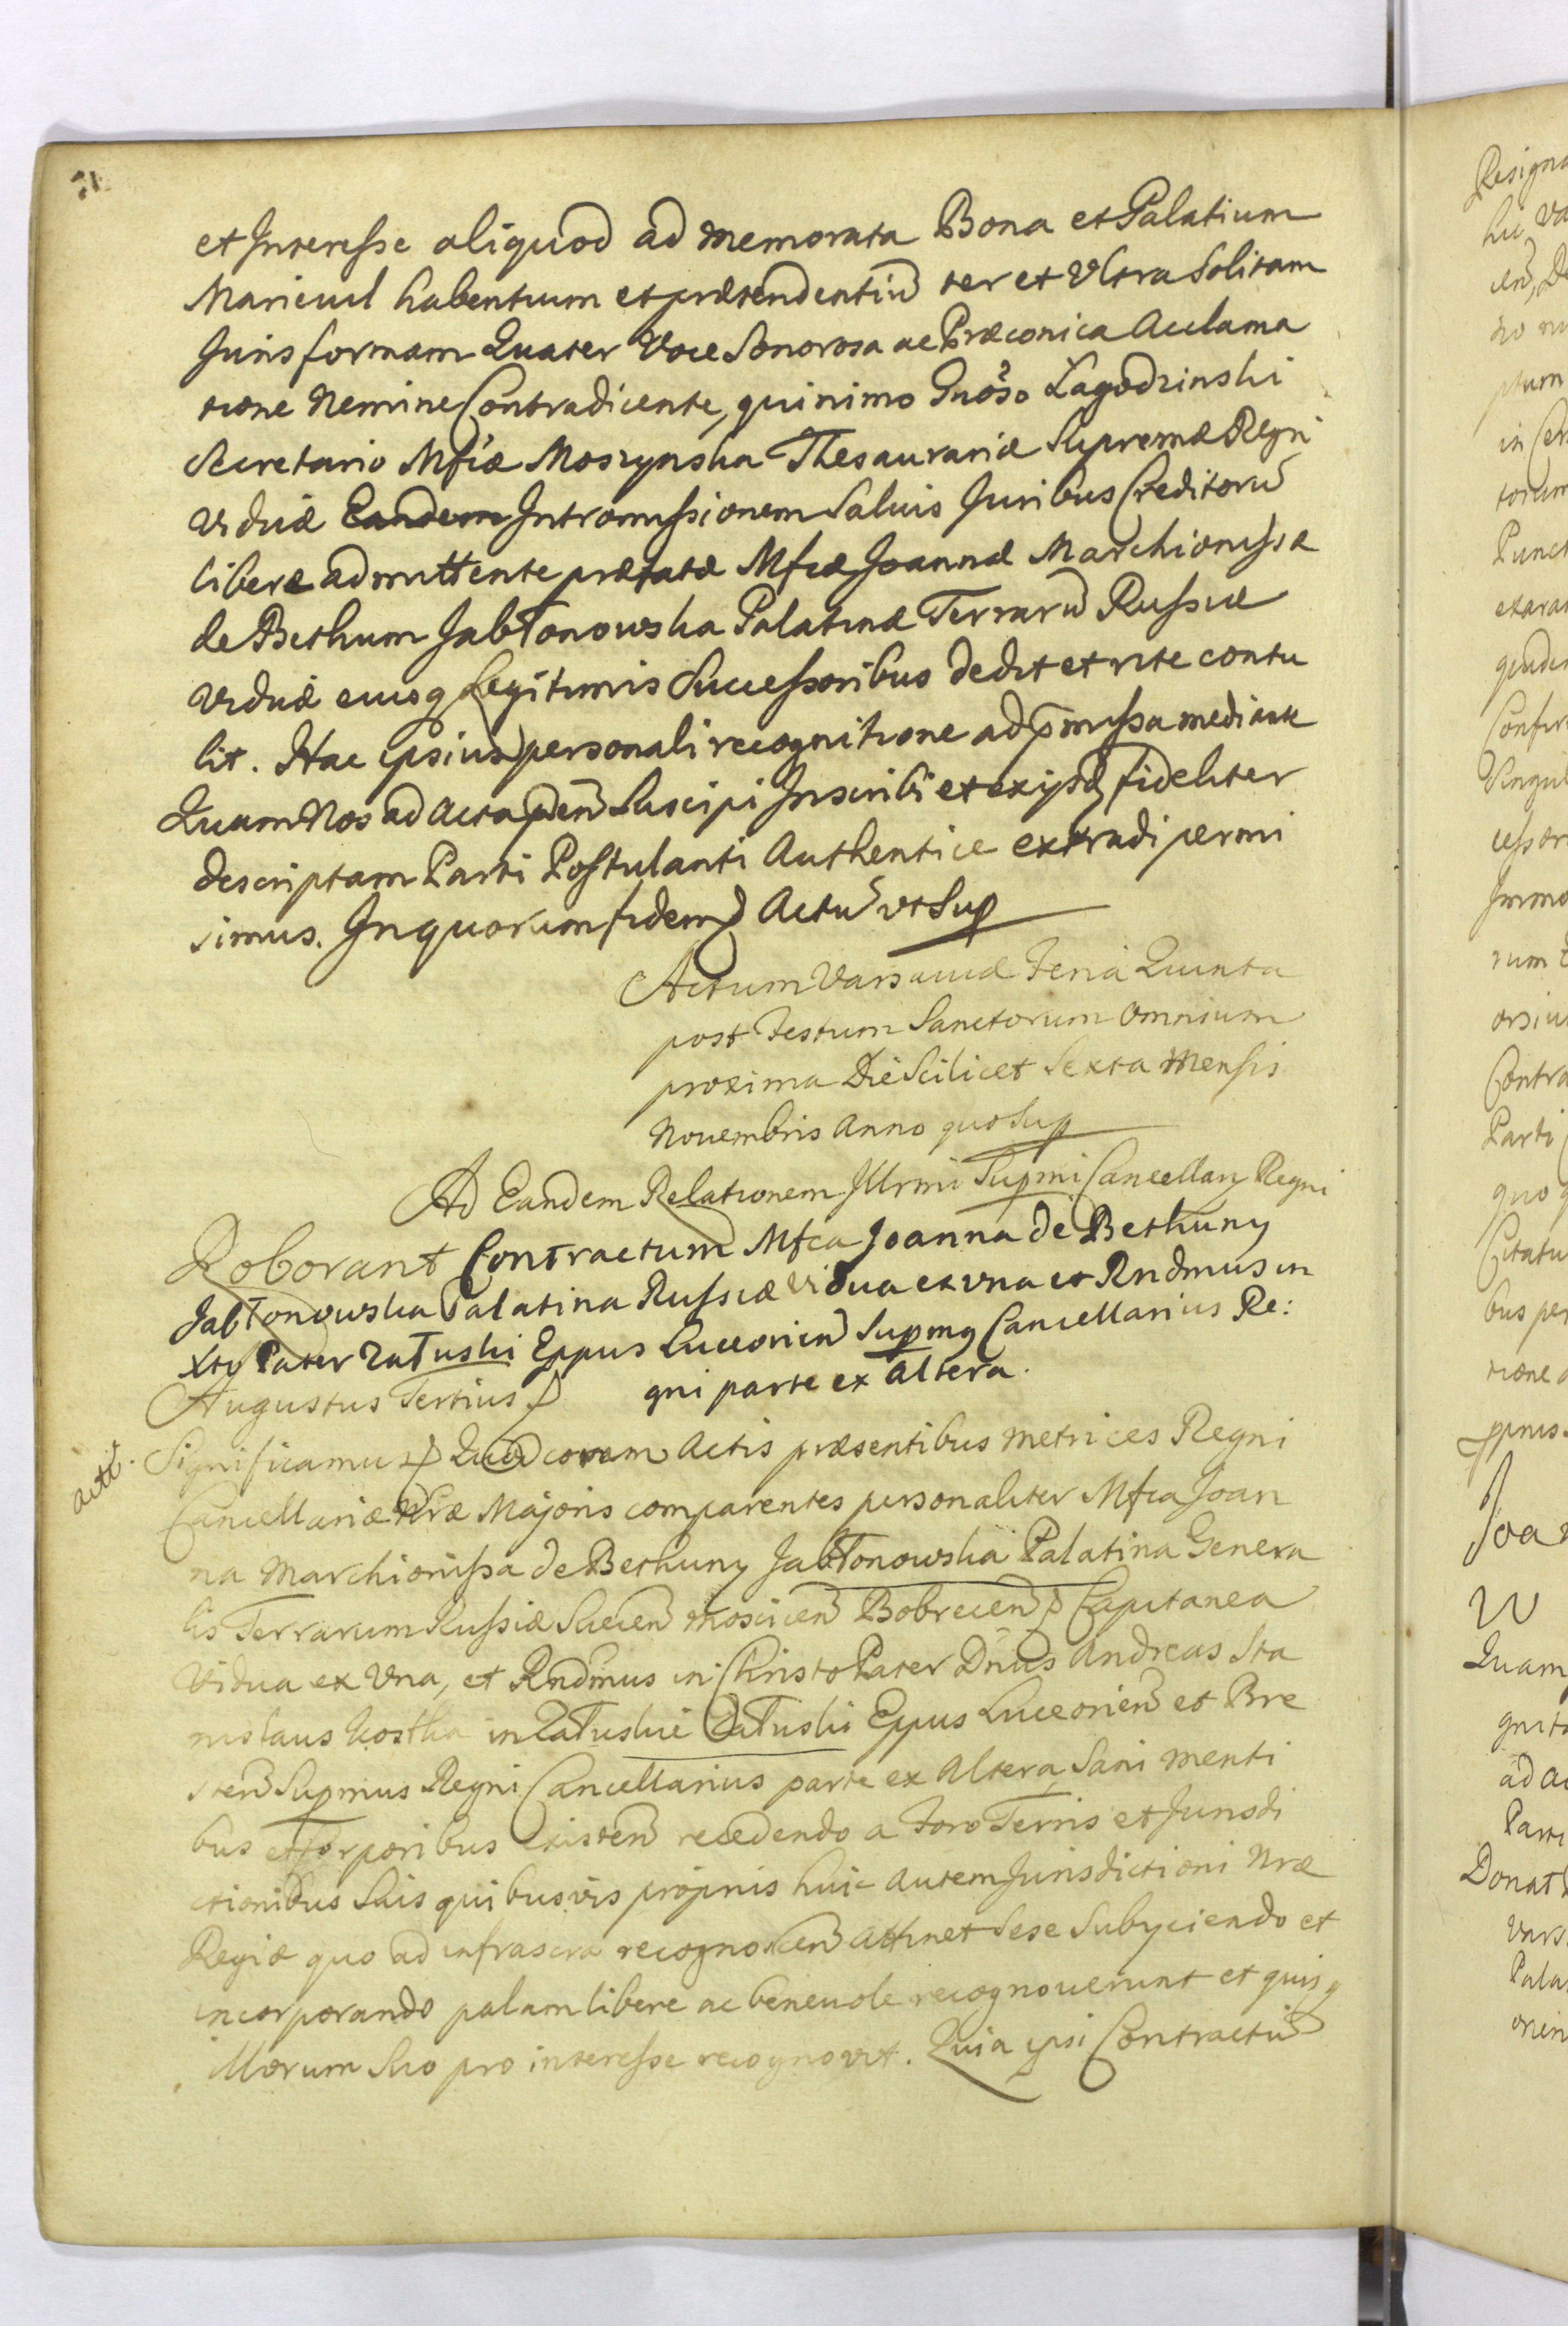 et Interesse aliquod ad memorata Bona et Palatium
Marievil habentium et prætendentiũ ter et Ultra Solitam
Juris formam Quater Voce Sonorosa ac Præconica Acclama
tione Nemine Contradicente, quinimo Gnoso Łagodzinski
Secretario Mfcæ Moszynska Thesaurariæ Supremæ Regni
Viduæ Eandem Intromissionem Salvis Juribus Creditorũ
libere admittente præfatæ Mfcæ Joannæ Marchionissæ
de Bethum Jabłonowska Palatinæ Terrarũ Russiæ
Viduæ eiusq Legitimis Successoribus dedit et rite contu
lit. Hac ipsius personali recognitione ad p̃missa mediante
Quam Nos ad Acta p̃nẽ Suscipi Inscribi et ex ijsd fideliter
descriptam Parti Postulanti Authentice extradi permi
simus. In quorum fidem Actũ ut Sup
Actum Varsaviæ Feria Quinta
post Festum Sanctorum Omnium
proxima Die Scilicet Sexta Mensis
Novembris Anno quo Sup
Ad Eandem Relationem Illrmi Supmi Cancellarij Regni
Roborant Contractum Mfca Joanna de Bethuny
Jabłonowska Palatina Russiæ Vidua ex una et Rndmus in
Xto Pater Załuski Eppus Luceorien Supmg Cancellarius Re:
gni parte ex Altera.
Augustus Tertius
actt.
Significamus Quod coram Actis præsentibus Metrices Regni
Cancellariæ Nræ Majoris comparentes personaliter Mfca Joan
na Marchionissa de Bethuny Jabłonowska Palatina Genera
lis Terrarum Russiæ Bobrecen Capitanea
Vidua ex Una, et Rndmus in Christo Pater Dnus Andreas Sta
nislaus Kostka in Załuskie Załuski Eppus Luceorien et Bre
sten Supmus Regni Cancellarius parte ex Altera, Sani menti
bus et Corporibus existen recedendo a Foro Terris et Jurisdi
ctionibus Suis quibusvis proprijs huic autem Jurisdictioni Nræ
Regiæ quo ad infrascra recognoscen Attinet Sese Subijciendo et
incorporando palam libere ac benevole recognoverunt et quisq
illorum Suo pro interesse recognovit. Quia ipsi Contractũ